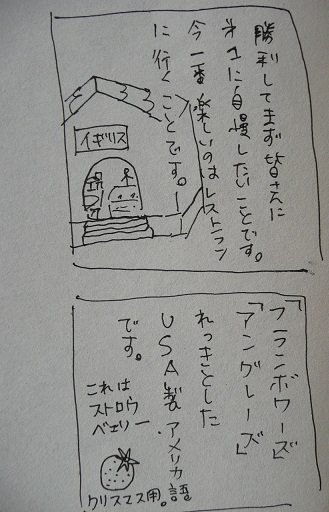 勝利してまず皆さんに
才1に自慢したいことです。
今一番楽しいのはレストラン
に行くことです。ー
イギリス
「フランボワーズ」
「アングレーズ」
れっきとした
USA製.アメリカ語
です。
これは
ストロウ
ベェリー
クリスマス用。